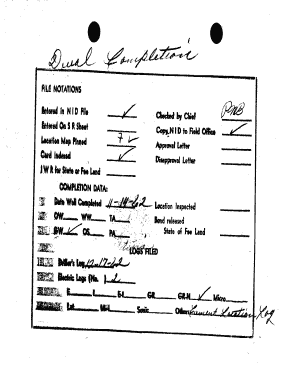 Dual Completion
FILE NOTATIONS
Entered in NID File ✓ Checked by Chief PMB
Entered On S R Sheet Copy NID to Field Office ✓
Location Map Pinned ✓ Approval Letter
Card Indexed ✓ Disapproval Letter
I W R for State or Fee Land
COMPLETION DATA:
Date Well Completed 11-18-62 Location Inspected
OW WW TA Bond released
GW ✓ OS PA State of Fee Land
LOGS FILED
Driller's Log 12-17-62
Electric Logs (No.) 2
E I E-I GR GR-N ✓ Micro
Lat Mi-L Sonic Others Cement Location Log